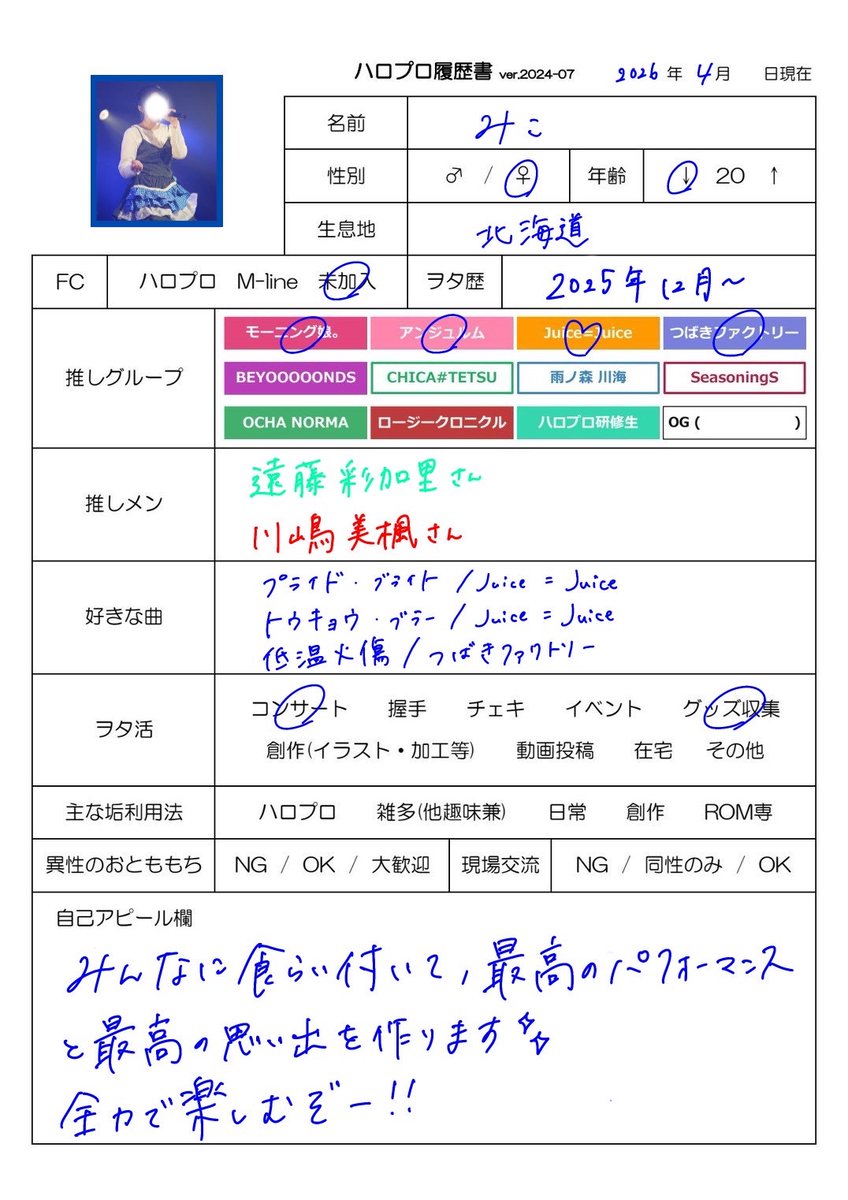 ハロプロ履歴書 ver.2024-07 2026 年 4 月 日現在
名前 みこ
性別 ♂ / ♀ 年齢 ↓ 20 ↑
生息地 北海道
FC ハロプロ M-line 未加入 ヲタ歴 2025年12月〜
推しグループ
モーニング娘。 アンジュルム Juice=Juice つばきファクトリー
BEYOOOOONDS CHICA#TETSU 雨ノ森 川海 SeasoningS
OCHA NORMA ロージークロニクル ハロプロ研修生 OG ( )
推しメン
遠藤彩加里さん
川嶋美楓さん
好きな曲
プライド・ブライト / Juice = Juice
トウキョウ・ブラー / Juice = Juice
低温火傷 / つばきファクトリー
ヲタ活
コンサート 握手 チェキ イベント グッズ収集
創作(イラスト・加工等) 動画投稿 在宅 その他
主な垢利用法 ハロプロ 雑多(他趣味兼) 日常 創作 ROM専
異性のおとももち NG / OK / 大歓迎 現場交流 NG / 同性のみ / OK
自己アピール欄
みんなに食らい付いて,最高のパフォーマンス
と最高の思い出を作ります✨
全力で楽しむぞー!!